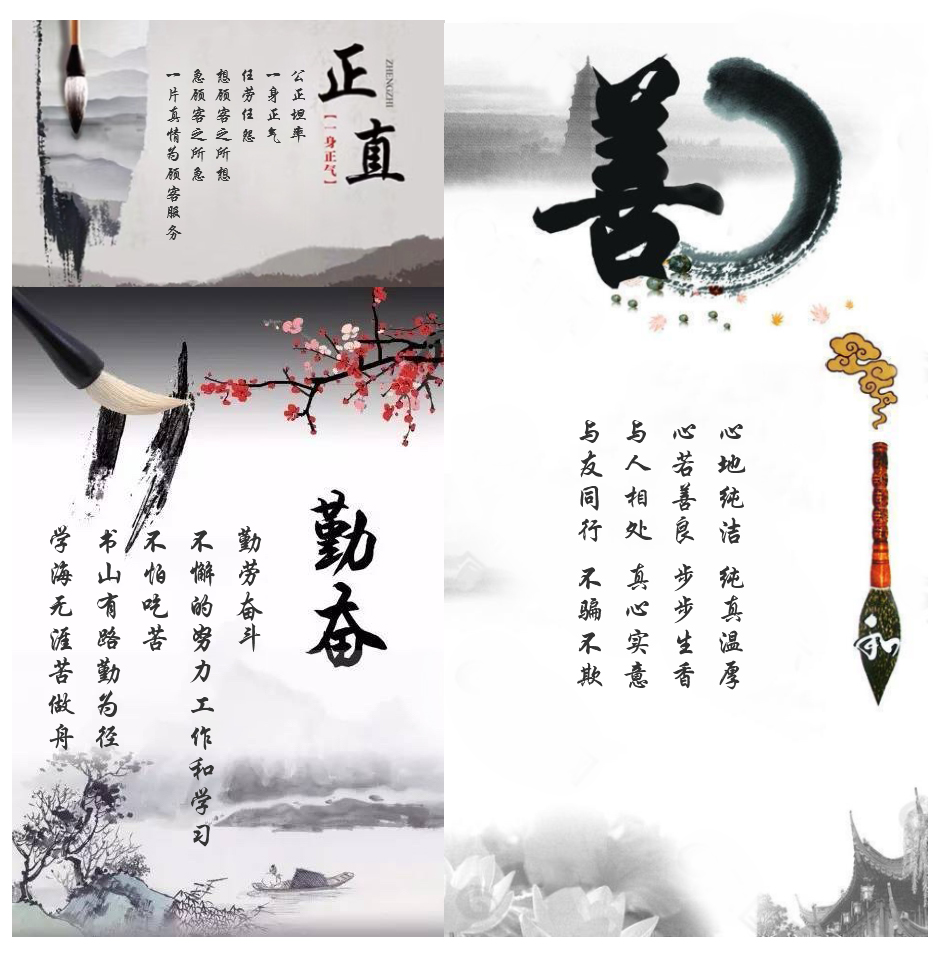 正直
ZHENGZHI
【一身正气】
公正坦率
一身正气
任劳任怨
想顾客之所想
急顾客之所急
一片真情为顾客服务
勤奋
勤劳奋斗
不懈的努力工作和学习
不怕吃苦
书山有路勤为径
学海无涯苦做舟
善
心地纯洁 纯真温厚
心若善良 步步生香
与人相处 真心实意
与友同行 不骗不欺
和